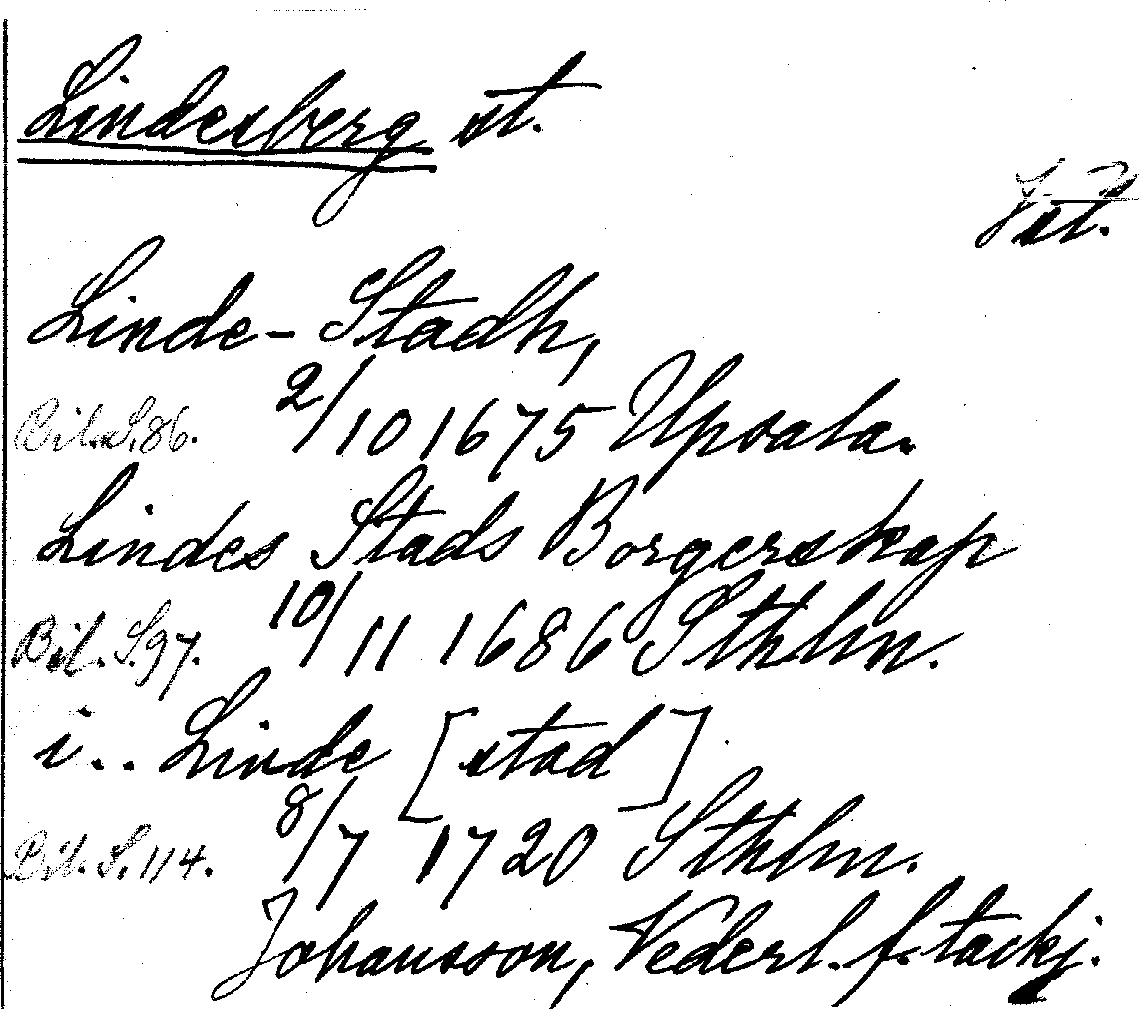 Lindesberg st.
st.
Linde-Stadh,
Bil. S. 86. 2/10 1675 Upsala.
Lindes Stads Borgerskap
Bil. S. 97. 10/11 1686 Sthlm.
i.. Linde [stad]
Bil. S. 114. 8/7 1720 Sthlm.
Johansson, Vederl. f. tackj.